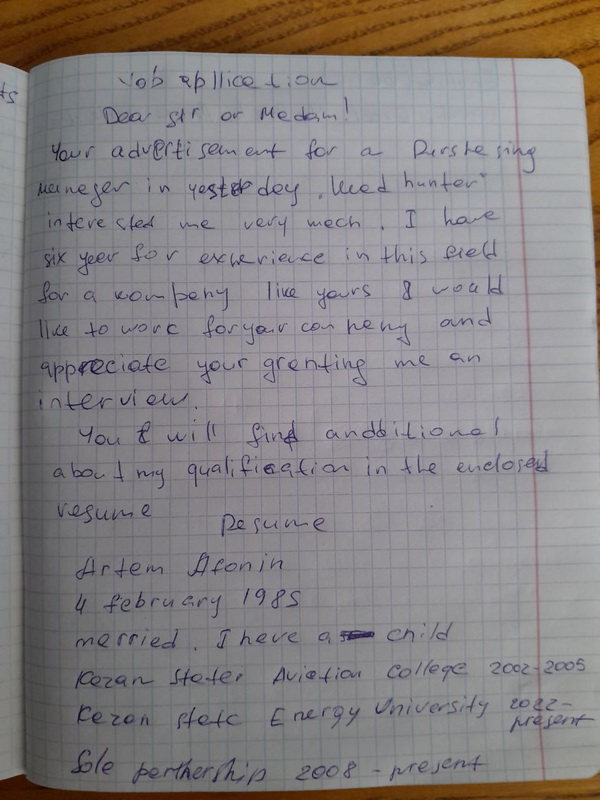 Job application
Dear Sir or Madam!
Your advertisement for a Purshesing
maneger in yesterday "Head hunter"
interested me very mech. I have
six yeer for experience in this field
for a kompeny like yours & would
like to work foryour company and
appreciate your grenting me an
interview.
You will find andditional
about my qualification in the enclosed
resume
Resume
Artem Afonin
4 february 1985
merried. I heve a child
Kezan Stater Aviation College 2002-2005
Kezan state Energy University 2022-
present
Sole perthership 2008 - present